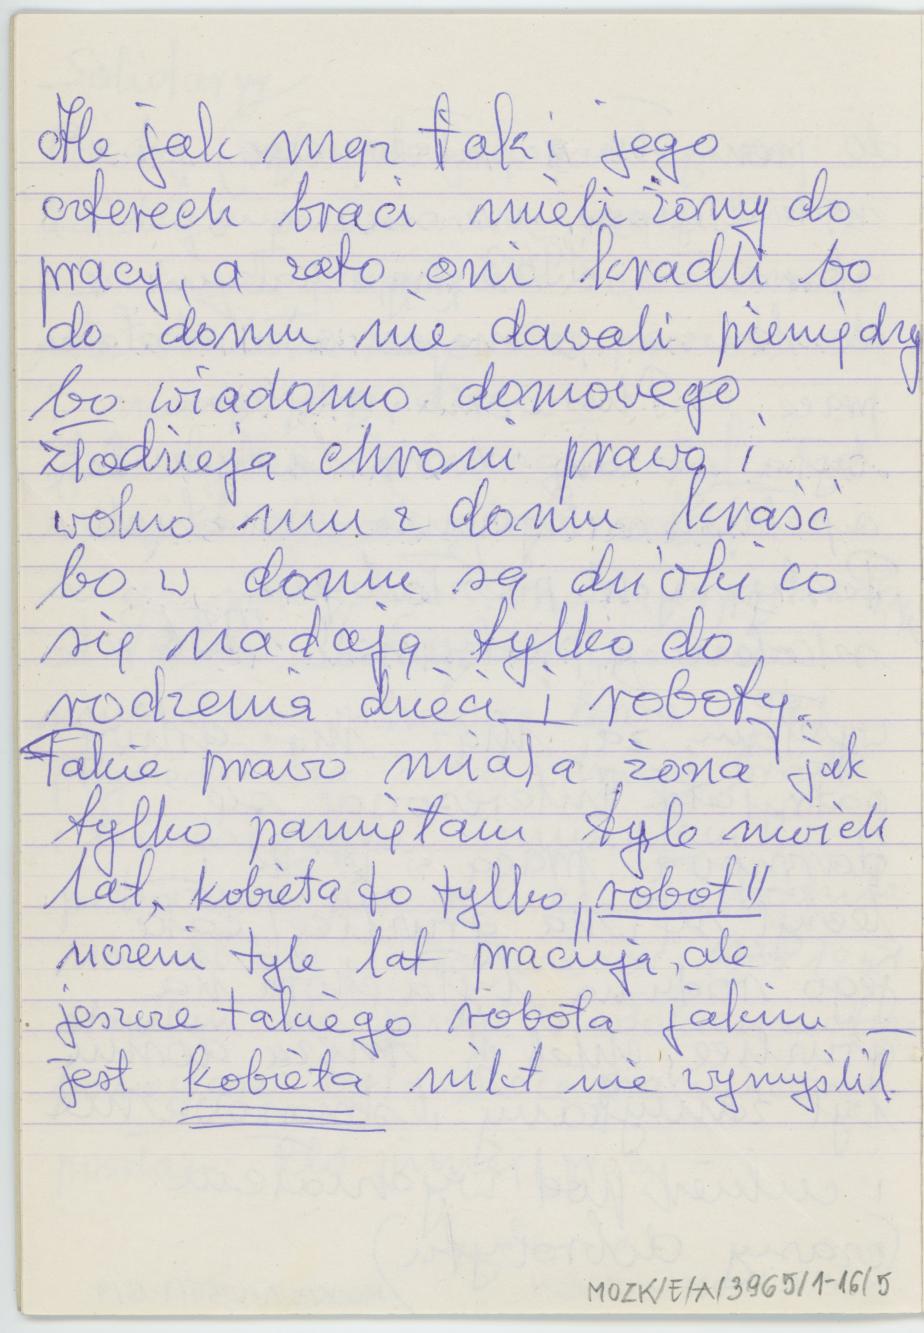 Ale jak mąz tak i jego
czterech braci mieli żony do
pracy, a zato oni kradli bo
do domu nie dawali pieniędzy
bo wiadomo domowego
złodzieja chroni prawo i
wolno mu z domu kraść
bo w domu są dziołki co
się nadają tylko do
rodzenia dzieci i roboty.
Takie prawo miała żona jak
tylko pamiętam tyle moich
lat, kobieta to tylko „robot"
uczeni tyle lat pracują, ale
jeszcze takiego robota jakim
jest kobieta nikt nie wymyślił.
MOZK/E/A/3965/1-16/5